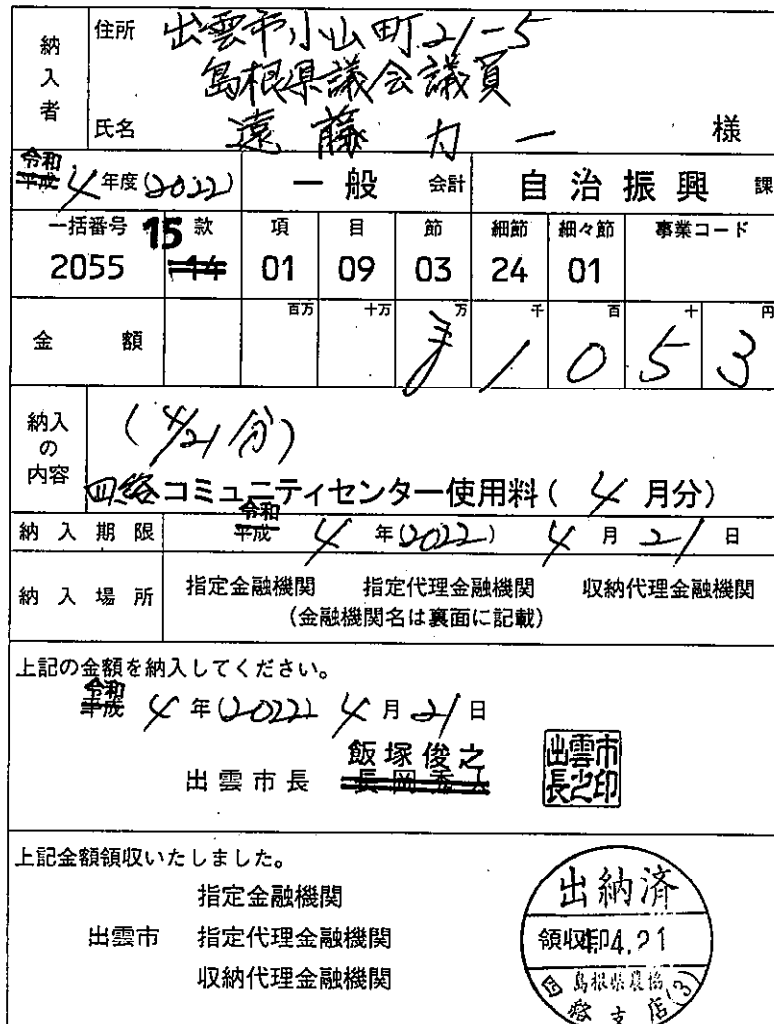 納入者 住所 出雲市小山町21-5
島根県議会議員
氏名 遠藤力一 様
令和 平成 4年度(2022) 一般 会計 自治振興 課
一括番号 15 款 項 目 節 細節 細々節 事業コード
2055 14 01 09 03 24 01
百万 十万 万 千 百 十 円
金額 ¥1053
納入の内容 (4/21分)
四絡コミュニティセンター使用料(4月分)
納入期限 令和 平成 4年(2022) 4月21日
納入場所 指定金融機関 指定代理金融機関 収納代理金融機関
(金融機関名は裏面に記載)
上記の金額を納入してください。
令和 平成 4年(2022) 4月21日
飯塚俊之
出雲市長 長岡秀人
出雲市長之印
上記金額領収いたしました。
指定金融機関
出雲市 指定代理金融機関
収納代理金融機関
出納済
領収印 4.4.21
島根県農協
絡支店(3)